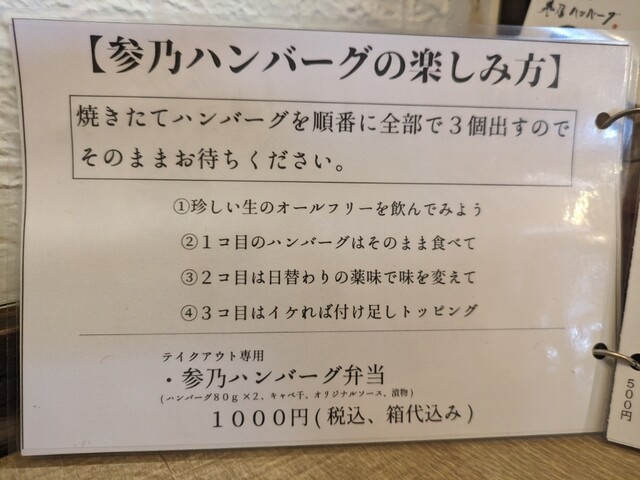 【参乃ハンバーグの楽しみ方】
焼きたてハンバーグを順番に全部で３個出すので
そのままお待ちください。
①珍しい生のオールフリーを飲んでみよう
②１コ目のハンバーグはそのまま食べて
③２コ目は日替わりの薬味で味を変えて
④３コ目はイケれば付け足しトッピング
テイクアウト専用
・参乃ハンバーグ弁当
(ハンバーグ８０ｇ×２、キャベ千、オリジナルソース、漬物)
１０００円(税込、箱代込み)
５００円